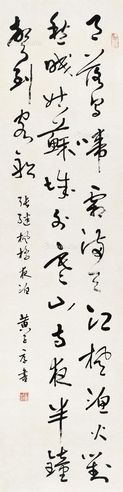 月落乌啼霜满天江枫渔火对
愁眠姑苏城外寒山寺夜半钟
声到客船
张继枫桥夜泊